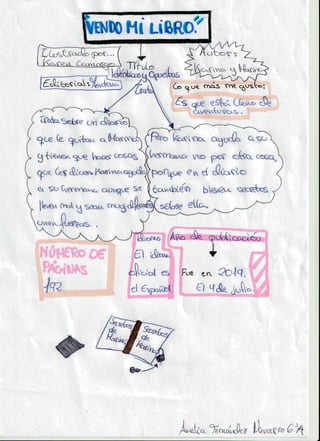 "VENDO MI LIBRO."
Ilustrado por...
Karen Camargo.
Autor:
Karina y Marina
Título
Idénticas y Opuestas
Editorial: Montena
Trata
Lo que más me gusto:
Es que está lleno de
aventuras.
Trata sobre un diario
que le quitan a Marina
y tienen que hacer cosas
que les dicen Karina ayuda
a su hermana aunque se
lleven mal y sean muy diferentes
unen fuerzas.
Pero Karina ayuda a su
hermana no por otra cosa,
porque en el diario
también bienen secretos
sobre ella.
NÚMERO DE
PÁGINAS
192
Idioma
El idioma
oficial es
el Español
Año de publicación
Fue en 2019.
El 4 de julio.
Secretos
de
Marina
Secretos
de
Karina
Amelia Fernández Navarro 6ºA